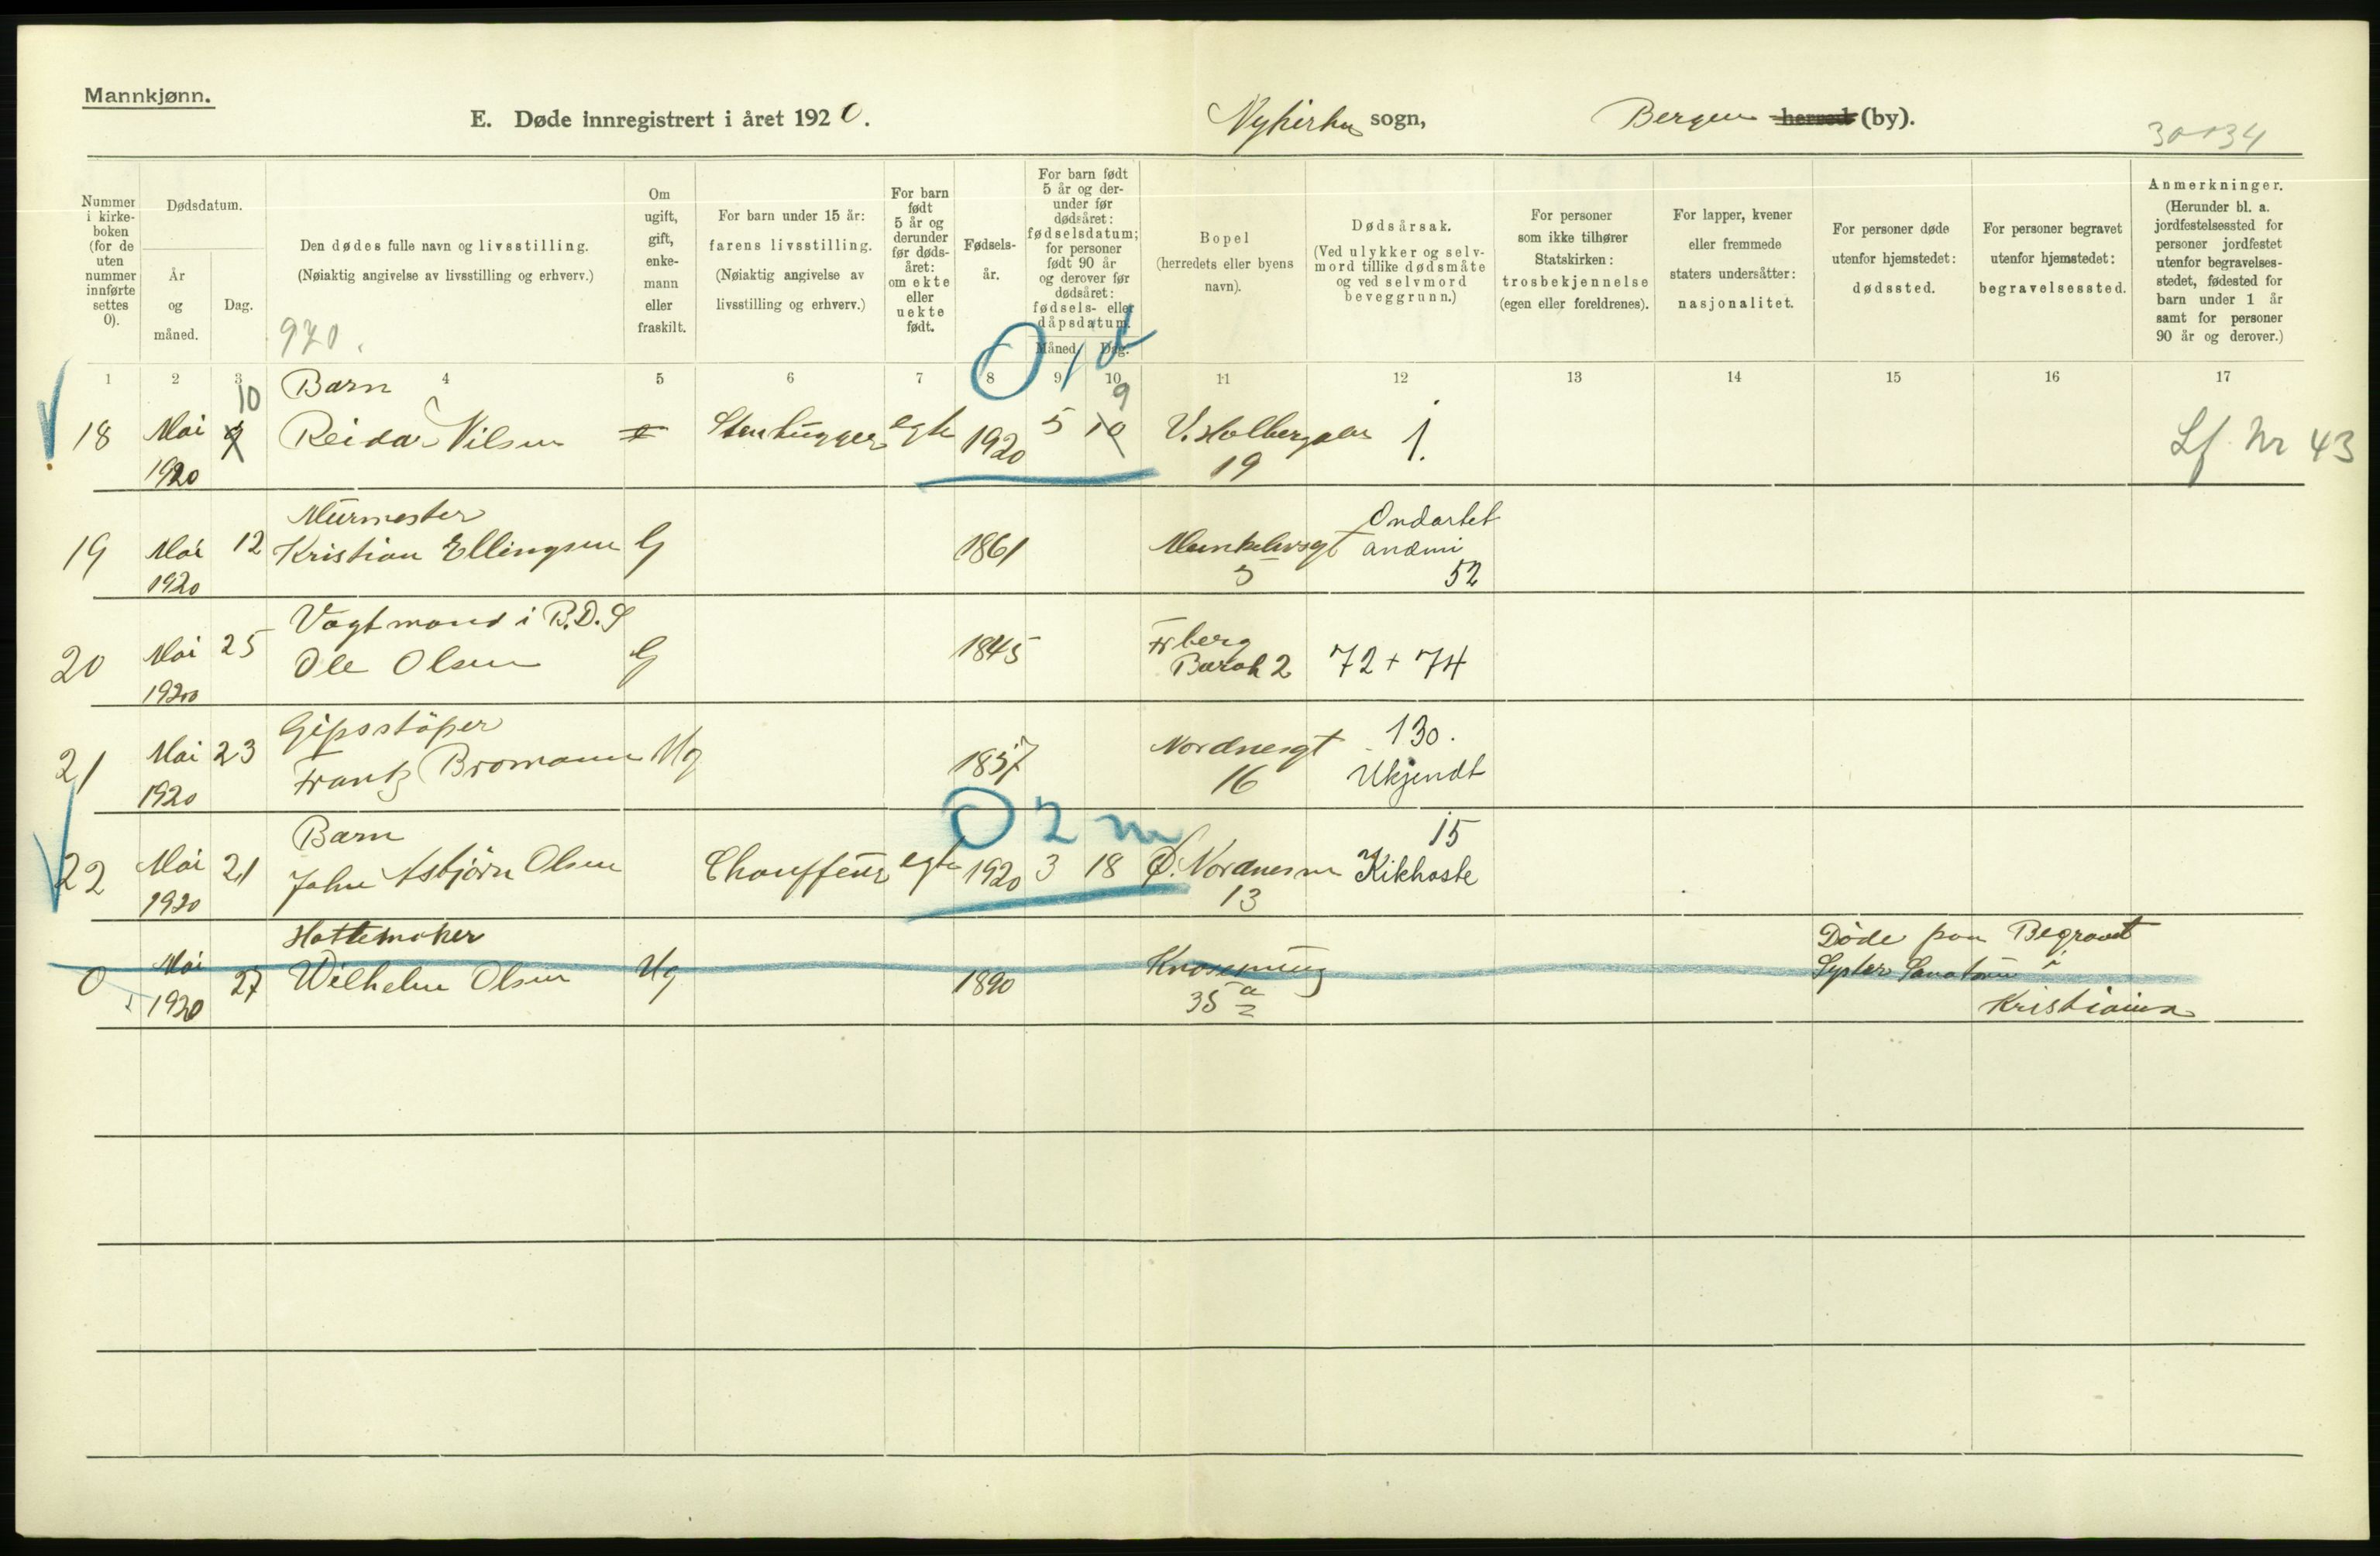 Mannkjønn.
E. Døde innregistrert i året 1920.
Nykirken sogn,
Bergen herred (by).
30034
Nummer i kirkeboken (for de uten nummer innførte settes 0).
Dødsdatum.
År og måned.
Dag.
Den dødes fulle navn og livsstilling.
(Nøiaktig angivelse av livsstilling og erhverv.)
970.
Om ugift, gift, enkemann eller fraskilt.
For barn under 15 år:
farens livsstilling.
(Nøiaktig angivelse av livsstilling og erhverv.)
For barn født 5 år og derunder før dødsåret: om ekte eller uekte født.
Fødselsår.
For barn født 5 år og derunder før dødsåret: fødselsdatum; for personer født 90 år og derover før dødsåret: fødsels- eller dåpsdatum.
Måned.
Dag.
Bopel
(herredets eller byens navn).
Dødsårsak.
(Ved ulykker og selvmord tillike dødsmåte og ved selvmord beveggrunn.)
For personer som ikke tilhører Statskirken:
trosbekjennelse
(egen eller foreldrenes).
For lapper, kvener eller fremmede staters undersåtter:
nasjonalitet.
For personer døde utenfor hjemstedet:
dødssted.
For personer begravet utenfor hjemstedet:
begravelsessted.
Anmerkninger.
(Herunder bl. a. jordfestelsessted for personer jordfestet utenfor begravelsesstedet, fødested for barn under 1 år samt for personer 90 år og derover.)
1 2 3 4 5 6 7 8 9 10 11 12 13 14 15 16 17
0 1 d
10 Barn 9
18 Mai 9 Reidar Nilsen Stenhugger egte 1920 5 10 V. Holbergalm 1.
1920 19
Lf. Nr 43
Murmester Ondartet
19 Mai 12 Kristian Ellingsen G 1861 Munkelivsgt anæmi
1920 5 52
Vagtmand i B.D.S
20 Mai 25 Ole Olsen G 1845 Frberg
1920 Barak 2 72 + 74
Gipsstøper 130.
21 Mai 23 Frantz Bromann Ug 1857 Nordnesgt
1920 16 Ukjendt
0 2 m
Barn 15
22 Mai 21 John Asbjørn Olsen Chauffeur egte 1920 3 18 Ø. Nordnesm Kikhoste
1920 13
Hattemaker Døde paa Begravet
0 Mai 27 Wilhelm Olsen Ug 1890 Sanatorium i
1920 35 a Kristiania